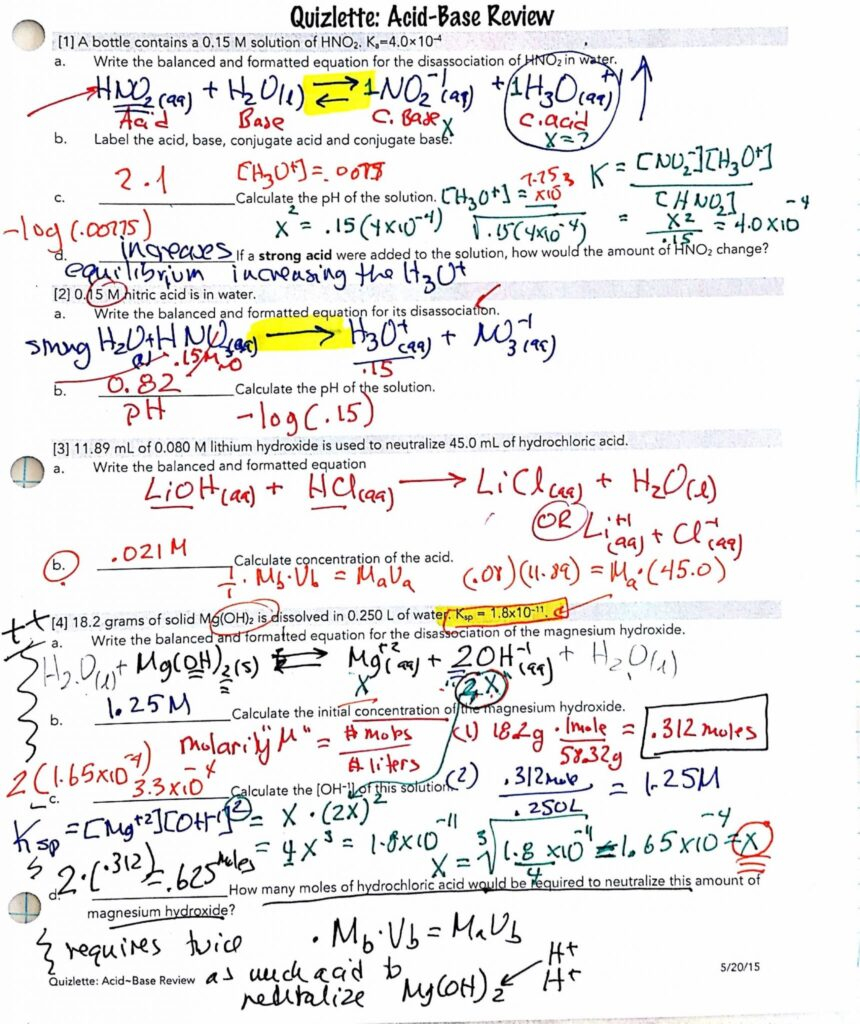 Quizlette: Acid-Base Review
[1] A bottle contains a 0.15 M solution of HNO₂. Kₐ=4.0×10⁻⁴
a. Write the balanced and formatted equation for the disassociation of HNO₂ in water.
HNO₂(aq) + H₂O(l) ⇌ 1NO₂⁻¹(aq) + 1H₃O⁺¹(aq) ↑
Acid Base C. Base C. acid
X X=?
b. Label the acid, base, conjugate acid and conjugate base.
K = [NO₂⁻][H₃O⁺]
[HNO₂]
2.1 [H₃O⁺]=.0078
c. Calculate the pH of the solution. [H₃O⁺] = 7.75 x10⁻³
-log(.00775) X² = .15(4x10⁻⁴) √.15(4x10⁻⁴) = X²/.15 = 4.0x10⁻⁴
d. increases If a strong acid were added to the solution, how would the amount of HNO₂ change?
equilibrium increasing the H₃O⁺
[2] 0.15 M nitric acid is in water.
a. Write the balanced and formatted equation for its disassociation.
strong H₂O + HNO₃(aq) → H₃O⁺(aq) + NO₃⁻¹(aq)
(l) .15M→0 .15
b. 0.82 Calculate the pH of the solution.
pH -log(.15)
[3] 11.89 mL of 0.080 M lithium hydroxide is used to neutralize 45.0 mL of hydrochloric acid.
a. Write the balanced and formatted equation
LiOH(aq) + HCl(aq) → LiCl(aq) + H₂O(l)
OR Li⁺¹(aq) + Cl⁻¹(aq)
b. .021M Calculate concentration of the acid.
1/1 · Mb·Vb = MaVa (.08)(11.89) = Ma·(45.0)
[4] 18.2 grams of solid Mg(OH)₂ is dissolved in 0.250 L of water. Ksp = 1.8x10⁻¹¹.
a. Write the balanced and formatted equation for the disassociation of the magnesium hydroxide.
H₂O(l) + Mg(OH)₂(s) ⇌ Mg⁺²(aq) + 2OH⁻¹(aq) + H₂O(l)
X 2X
b. 1.25M Calculate the initial concentration of the magnesium hydroxide.
molarity "M" = # mols / # liters (1) 18.2g · 1mole / 58.32g = .312 moles
2(1.65x10⁻⁴)
3.3x10⁻⁴
c. Calculate the [OH⁻¹] of this solution. (2) .312mole / .250L = 1.25M
Ksp = [Mg⁺²][OH⁻¹]² = X·(2X)²
= 4X³ = 1.8x10⁻¹¹
X = ³√1.8x10⁻¹¹/4 = 1.65x10⁻⁴ = X
2·(.312) = .625 moles
d. How many moles of hydrochloric acid would be required to neutralize this amount of
magnesium hydroxide?
requires twice · Mb·Vb = MaVb
as much acid to
neutralize Mg(OH)₂ H⁺
H⁺
Quizlette: Acid~Base Review
5/20/15